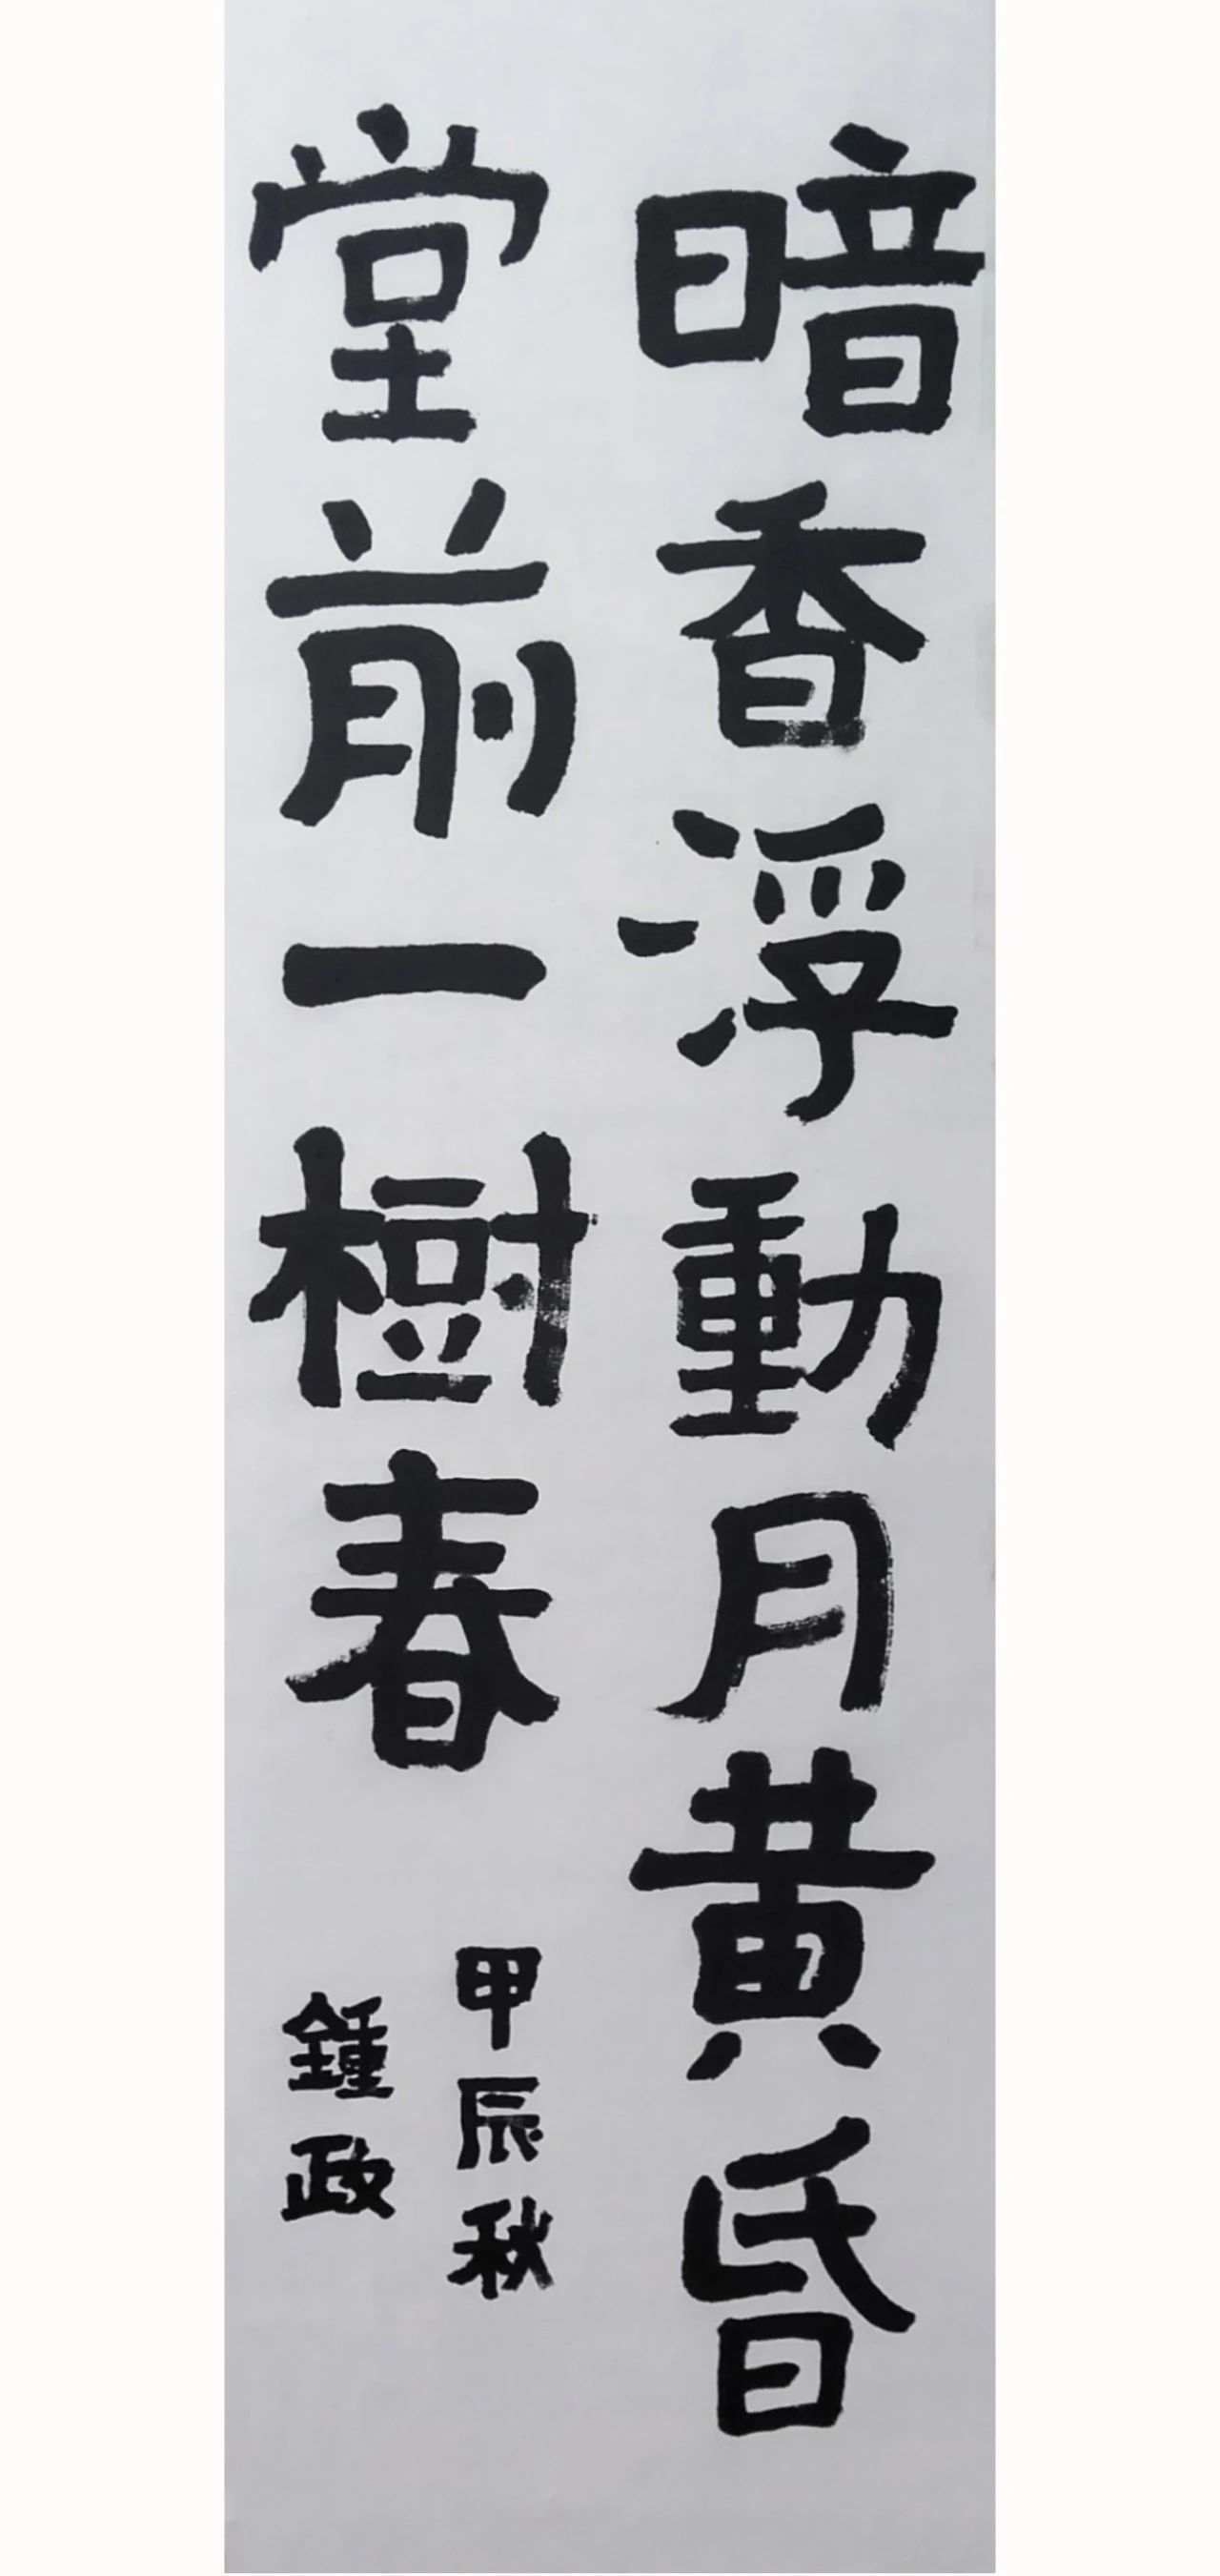 暗香浮動月黄昏
堂前一樹春
甲辰秋
鍾政